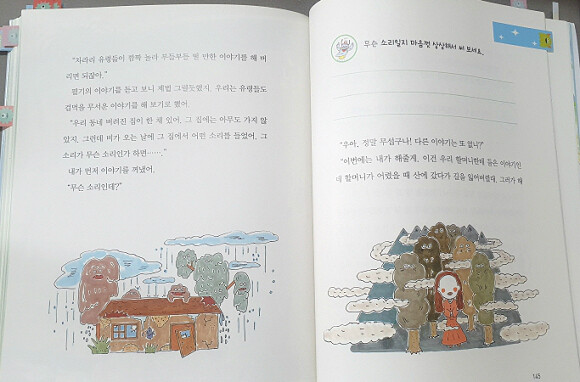 “차라리 유령들이 깜짝 놀라 부들부들 떨 만한 이야기를 해 버
리면 되잖아.”
딸기의 이야기를 듣고 보니 제법 그럴듯했지. 우리는 유령들도
겁먹을 무서운 이야기를 해 보기로 했어.
“우리 동네 버려진 집이 한 채 있어. 그 집에는 아무도 가지 않
았지. 그런데 비가 오는 날에 그 집에서 어떤 소리를 들었어. 그
소리가 무슨 소리인가 하면…….”
내가 먼저 이야기를 꺼냈어.
“무슨 소리인데?”
무슨 소리일지 마음껏 상상해서 써 보세요.
“우아, 정말 무섭구나! 다른 이야기는 또 없니?”
“이번에는 내가 해줄게. 이건 우리 할머니한테 들은 이야기인
데 할머니가 어렸을 때 산에 갔다가 길을 잃어버렸대. 그러가 해